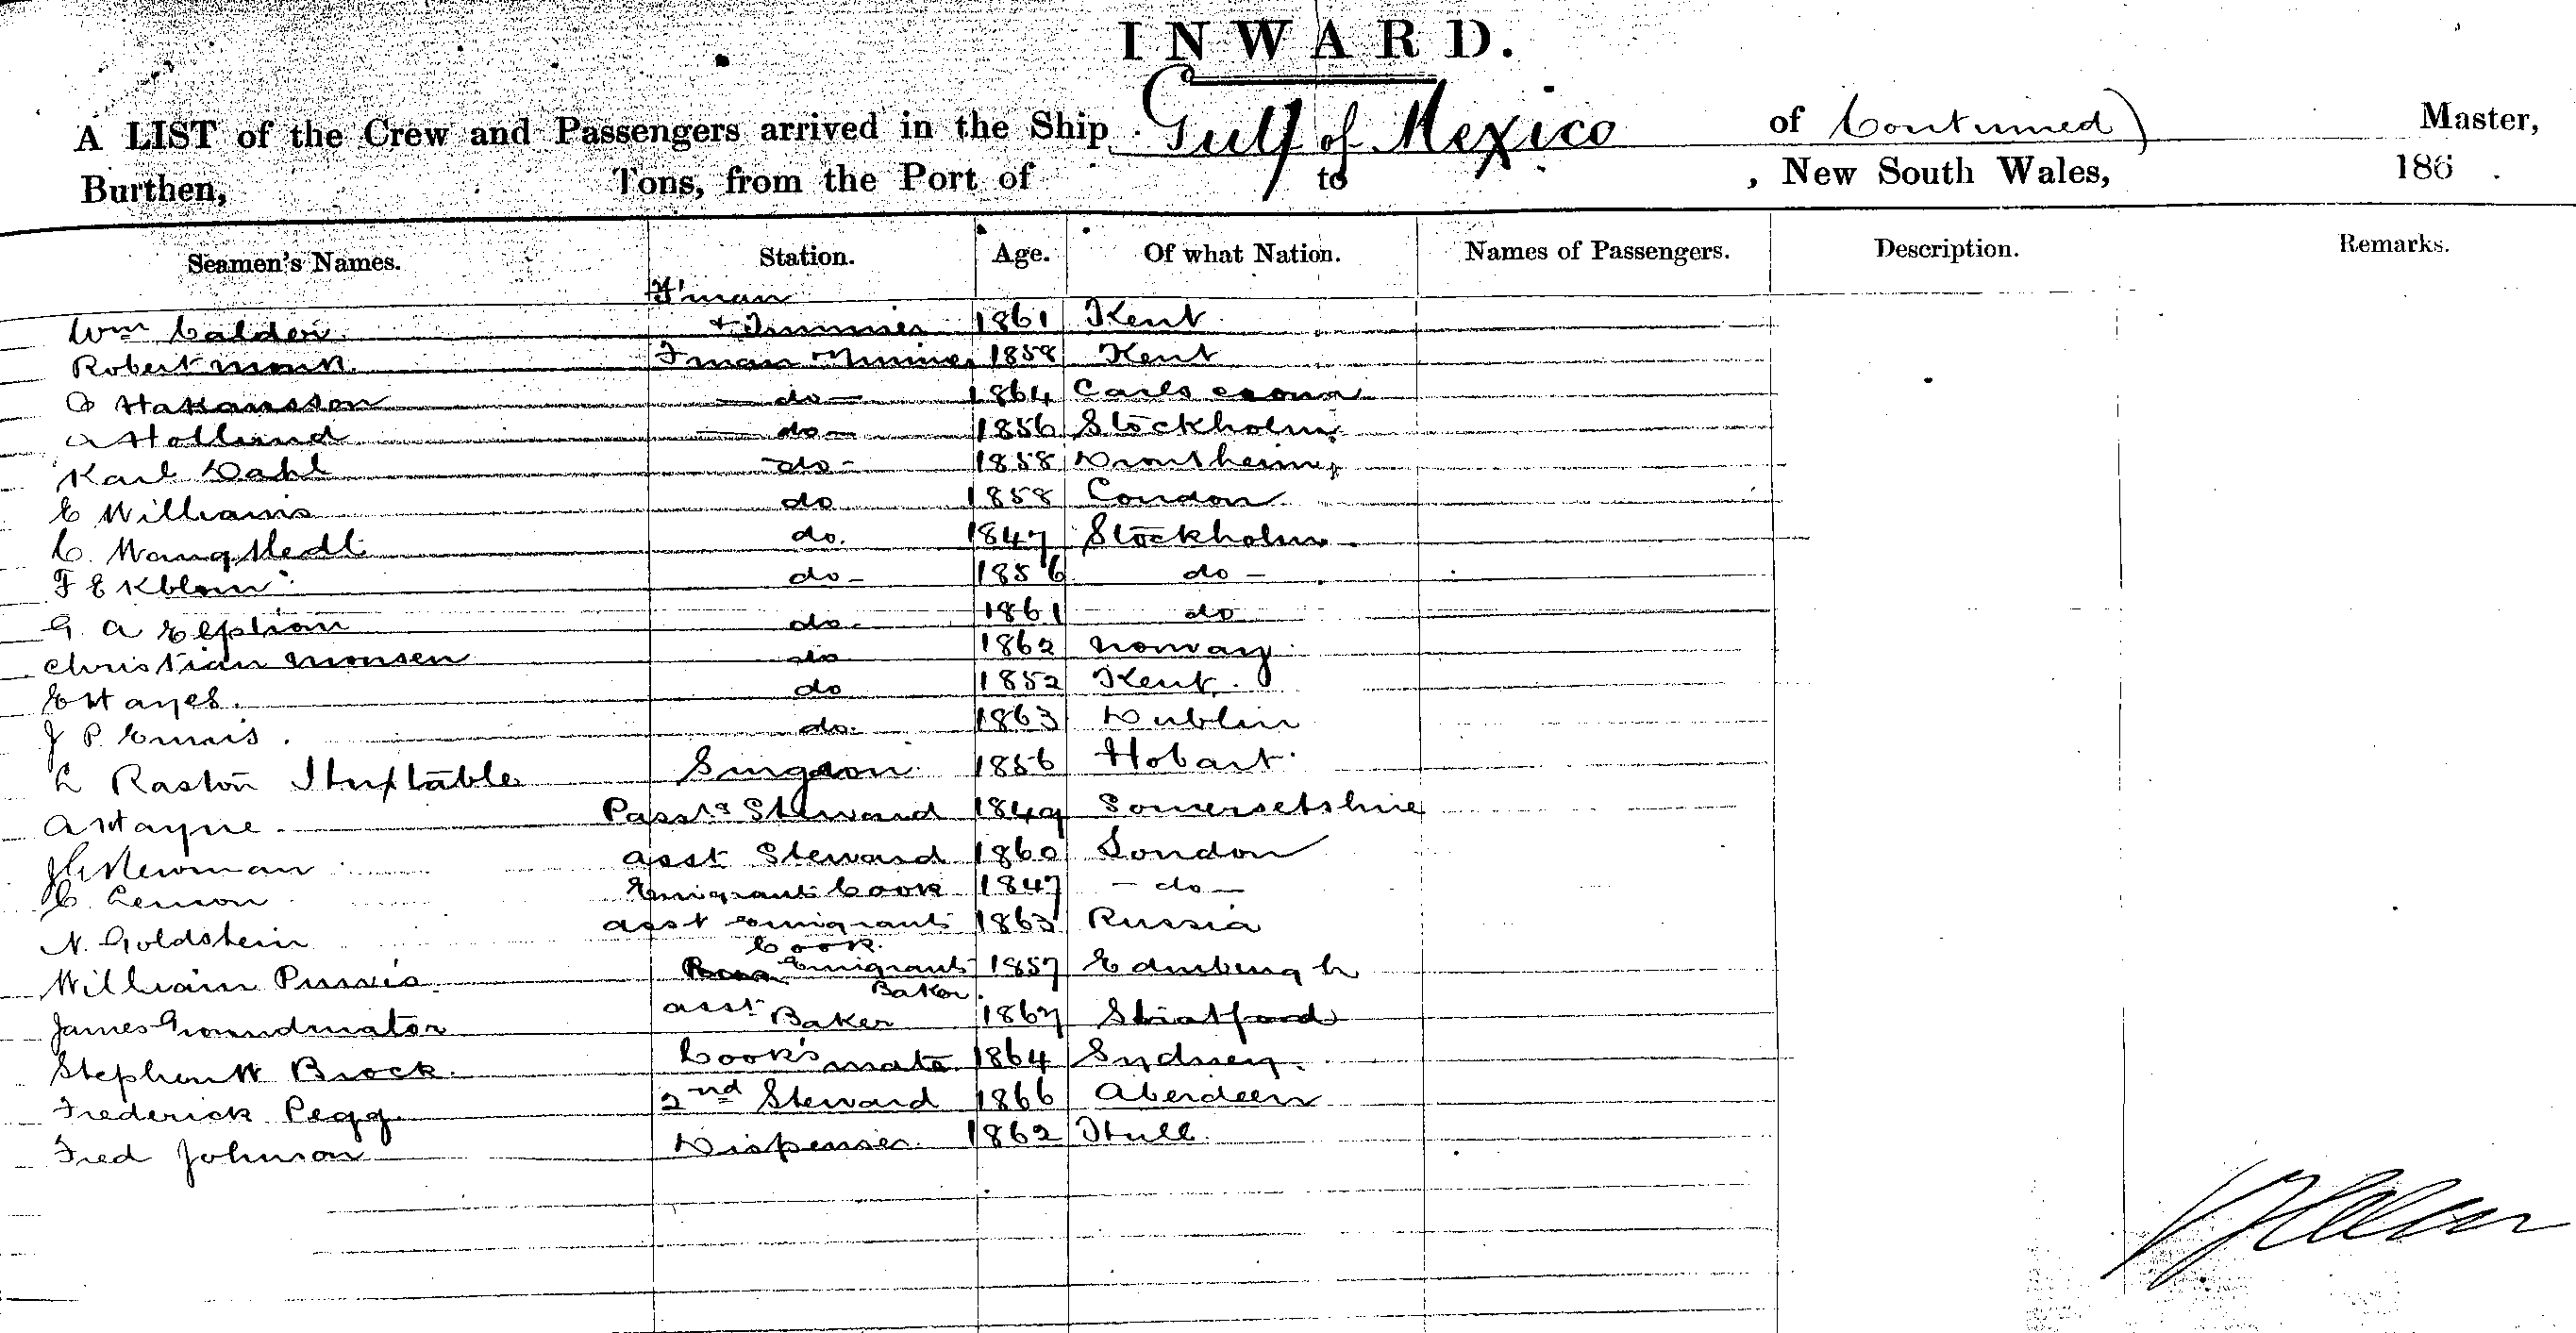 INWARD.
A LIST of the Crew and Passengers arrived in the Ship Gulf of Mexico of Continued) Master,
Burthen, Tons, from the Port of to , New South Wales, 186 .
Seamen's Names. Station. Age. Of what Nation. Names of Passengers. Description. Remarks.
F'man
Wm Calder + Trimmer 1861 Kent
Robert Monk F'man Trimmer 1858 Kent
Hakansson - do - 1864 Carlscrona
A Holland - do - 1856 Stockholm
Karl Dahl - do - 1858 Drontheim
E Williams do 1858 London
C. Wangstedt do. 1847 Stockholm
F Ekblom do - 1856 do -
G. A do - 1861 do
Christian Monsen do 1862 Norway
E Hayes. do 1852 Kent.
J P. Ennis. do. 1863 Dublin
L Raston Huxtable Surgeon 1856 Hobart
A Hayne Passrs Steward 1849 Somersetshire
J C Newman asst Steward 1860 London
C. Lennon Emigrants Cook 1847 - do -
N. Goldstein asst emigrants 1863 Russia
Cook.
William Purvis Emigrants 1857 Edinburgh
Baker.
James Groundwater asst Baker 1867 Stratford
Stephen W Brock. Cook's mate 1864 Sydney.
Frederick Pegg. 2nd Steward 1866 Aberdeen
Fred Johnson Dispenser. 1862 Hull.